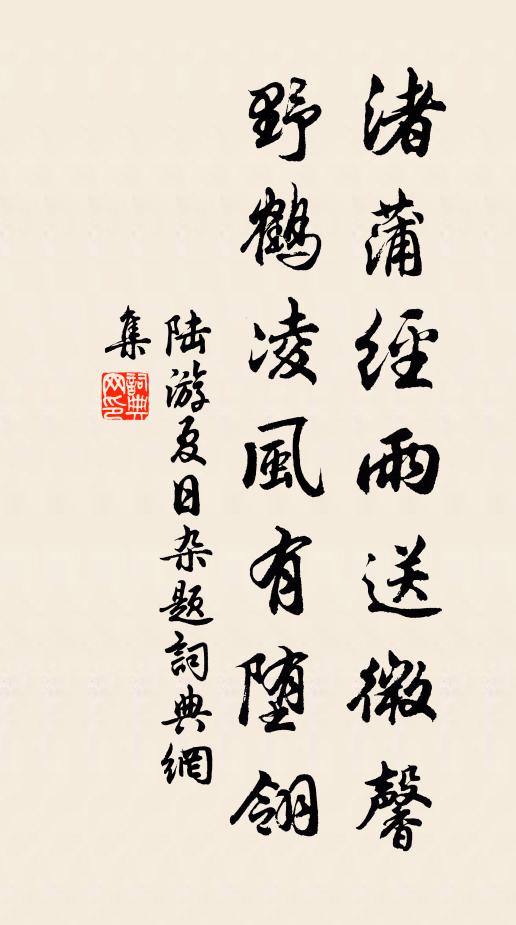 渚蒲經雨送微馨
野鶴凌風有堕翎
陆游夏日杂题詞典網
集
詞典网印